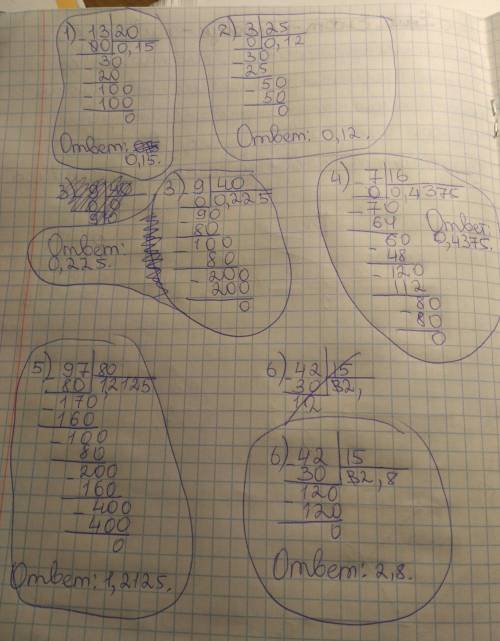 1) -13|20
00|0,15
-30
20
-100
100
0
Ответ:
0,15.
2) -3|25
0|0,12
-30
25
-50
50
0
Ответ: 0,12.
3) 9|40
0|0,225
-90
80
-100
80
-200
200
0
Ответ:
0,225.
4) 7|16
0|0,4375
-70
64
-60
48
-120
112
-80
80
0
Ответ
0,4375.
5) -97|80
80|12125
-170
160
-100
80
-200
160
-400
400
0
Ответ: 1,2125.
6) -42|15
30|32,
12
6) -42|15
30|2,8
-120
120
0
Ответ: 2,8.